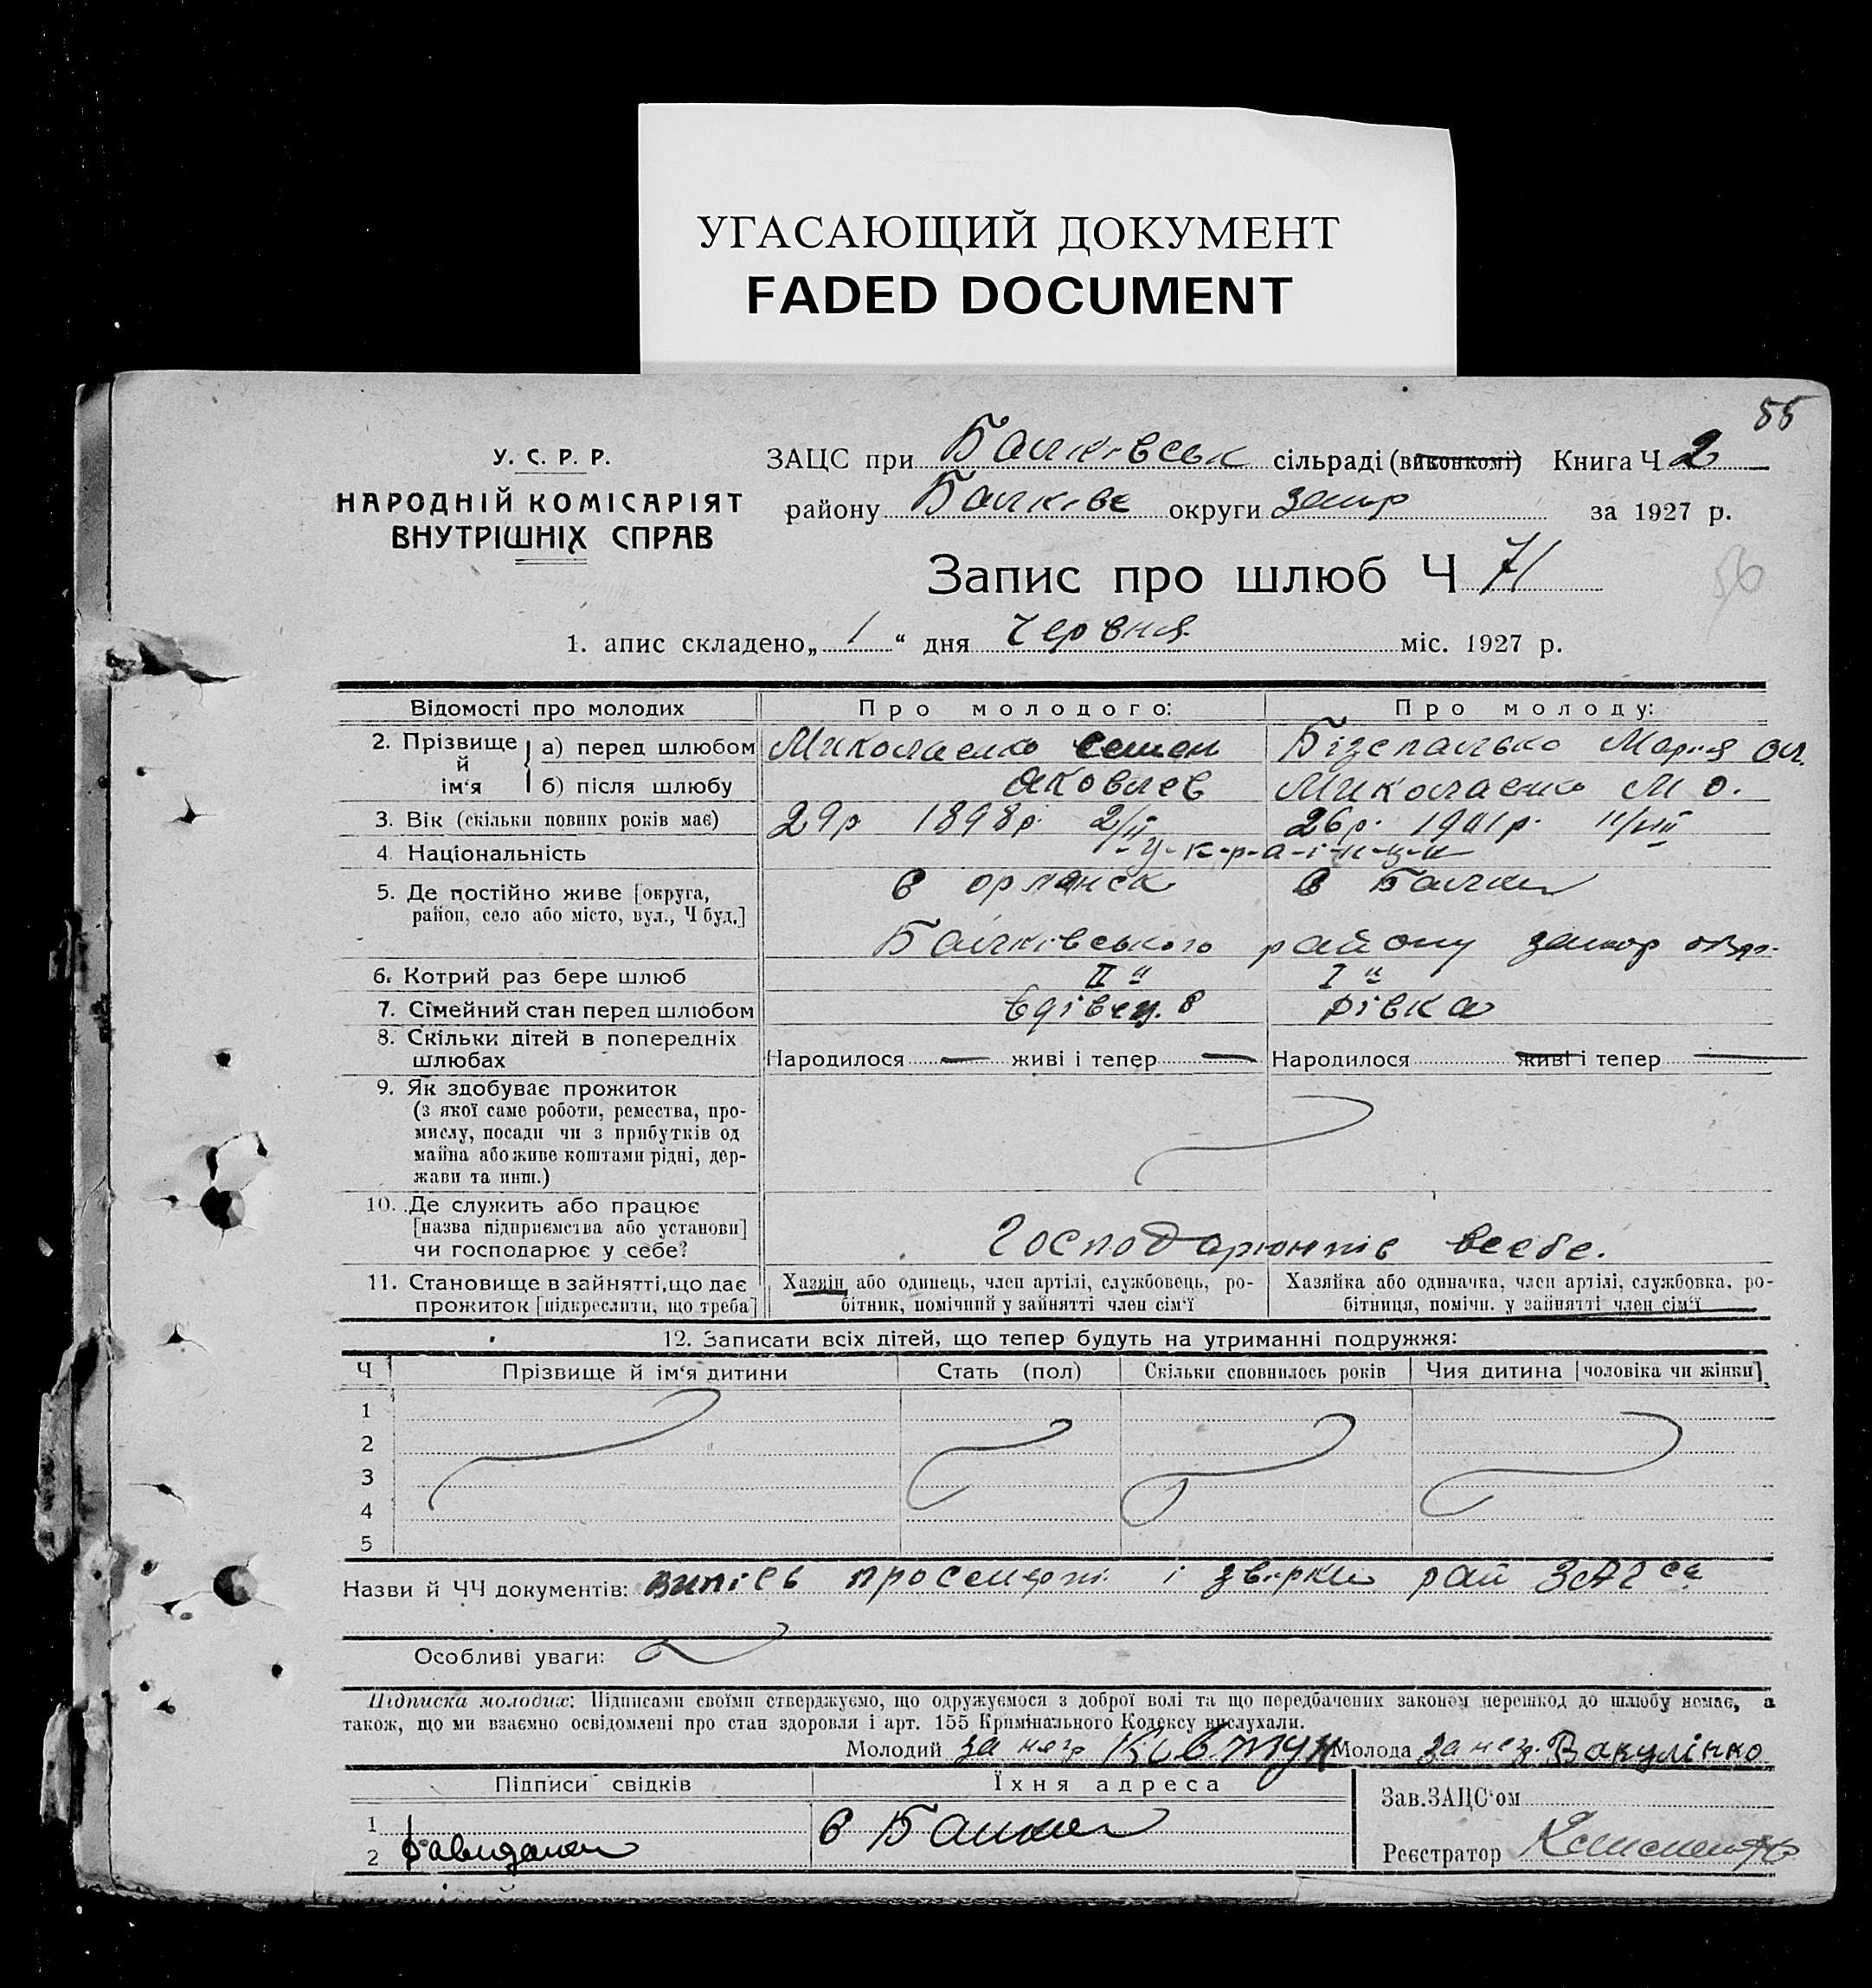 УГАСАЮЩИЙ ДОКУМЕНТ
FADED DOCUMENT
55
У. С. Р. Р.
НАРОДНІЙ КОМІСАРІЯТ
ВНУТРІШНІХ СПРАВ
ЗАЦС при Балківськ сільраді (виконкомі) Книга Ч 2
району Балківс округи Запор за 1927 р.
Запис про шлюб Ч 71
56
1. апис складено „ 1 “ дня Червня міс. 1927 р.
Відомості про молодих Про молодого: Про молоду:
2. Прізвище й ім‘я а) перед шлюбом Миколаенко Семен Бізспалько Мария Ол.
б) після шлюбу Яковлев Миколаенко М О.
3. Вік (скільки повних років має) 29р 1898р. 2/II 26р. 1901р. 11/VIII
4 Національність У-к-р-а-ї-н-ц-и
5. Де постійно живе [округа, район, село або місто, вул., Ч буд.] в орлянск в Балках
Балківського району запор окр.
6. Котрий раз бере шлюб II й I й
7. Сімейний стан перед шлюбом вдівец. дівка
8. Скільки дітей в попередніх шлюбах Народилося — живі і тепер — Народилося живі і тепер —
9. Як здобуває прожиток
(з якої саме роботи, ремества, про-
мислу, посади чи з прибутків од
майна або живе коштами рідні, дер-
жави та инш.)
10. Де служить або працює
[назва підприємства або установи]
чи господарює у себе? Господарюють всебе.
11. Становище в зайнятті, що дає прожиток [підкреслити, що треба]
Хазяїн або одинець, член артілі, службовець, ро-
бітник, помічний у зайнятті член сім‘ї
Хазяйка або одиначка, член артілі, службовка, ро-
бітниця, помічн. у зайнятті член сім‘ї
12. Записати всіх дітей, що тепер будуть на утриманні подружжя:
Ч Прізвище й ім‘я дитини Стать (пол) Скільки сповнилось років Чия дитина [чоловіка чи жінки]
1
2
3
4
5
Назви й ЧЧ документів: випісь просмерть і звірки рай ЗАГса
Особливі уваги:
Підписка молодих: Підписами своїми стверджуємо, що одружуємося з доброї волі та що передбачених законом перешкод до шлюбу немає, а
також, що ми взаємно освідомлені про стан здоровля і арт. 155 Кримінального Кодексу вислухали.
Молодий за негр Ковтун Молода за негр. Вакулінко
Підписи свідків Їхня адреса
Зав. ЗАЦС‘ом
1
2 в Балках
Реєстратор